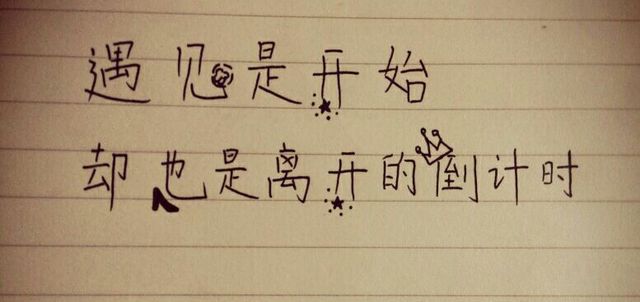 遇见是开始
却也是离开的倒计时